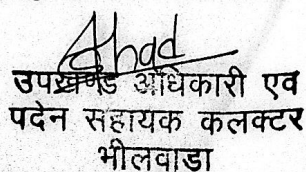 उपखण्ड अधिकारी एव
पदेन सहायक कलक्टर
भीलवाडा